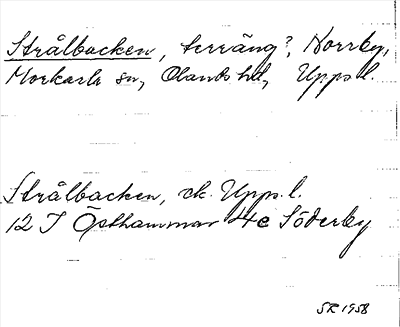 Strålbacken, terräng?, Norrby,
Morkarla sn, Olands hd, Upps.l.
Strålbacken, ek. Upps.l.
12 I Östhammar 4c Söderby
SR 1958